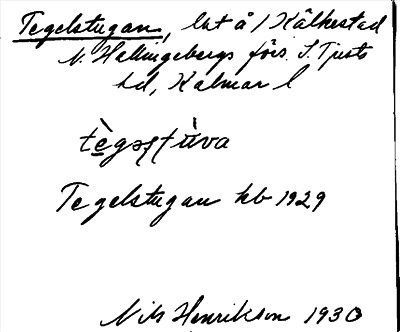 Tegelstugan, lht å 1 Kålkestad
N. Hallingebergs förs. S. Tjusts
hd, Kalmar l
tègəsstùva
Tegelstugan kb 1929
Nils Henrikson 1930